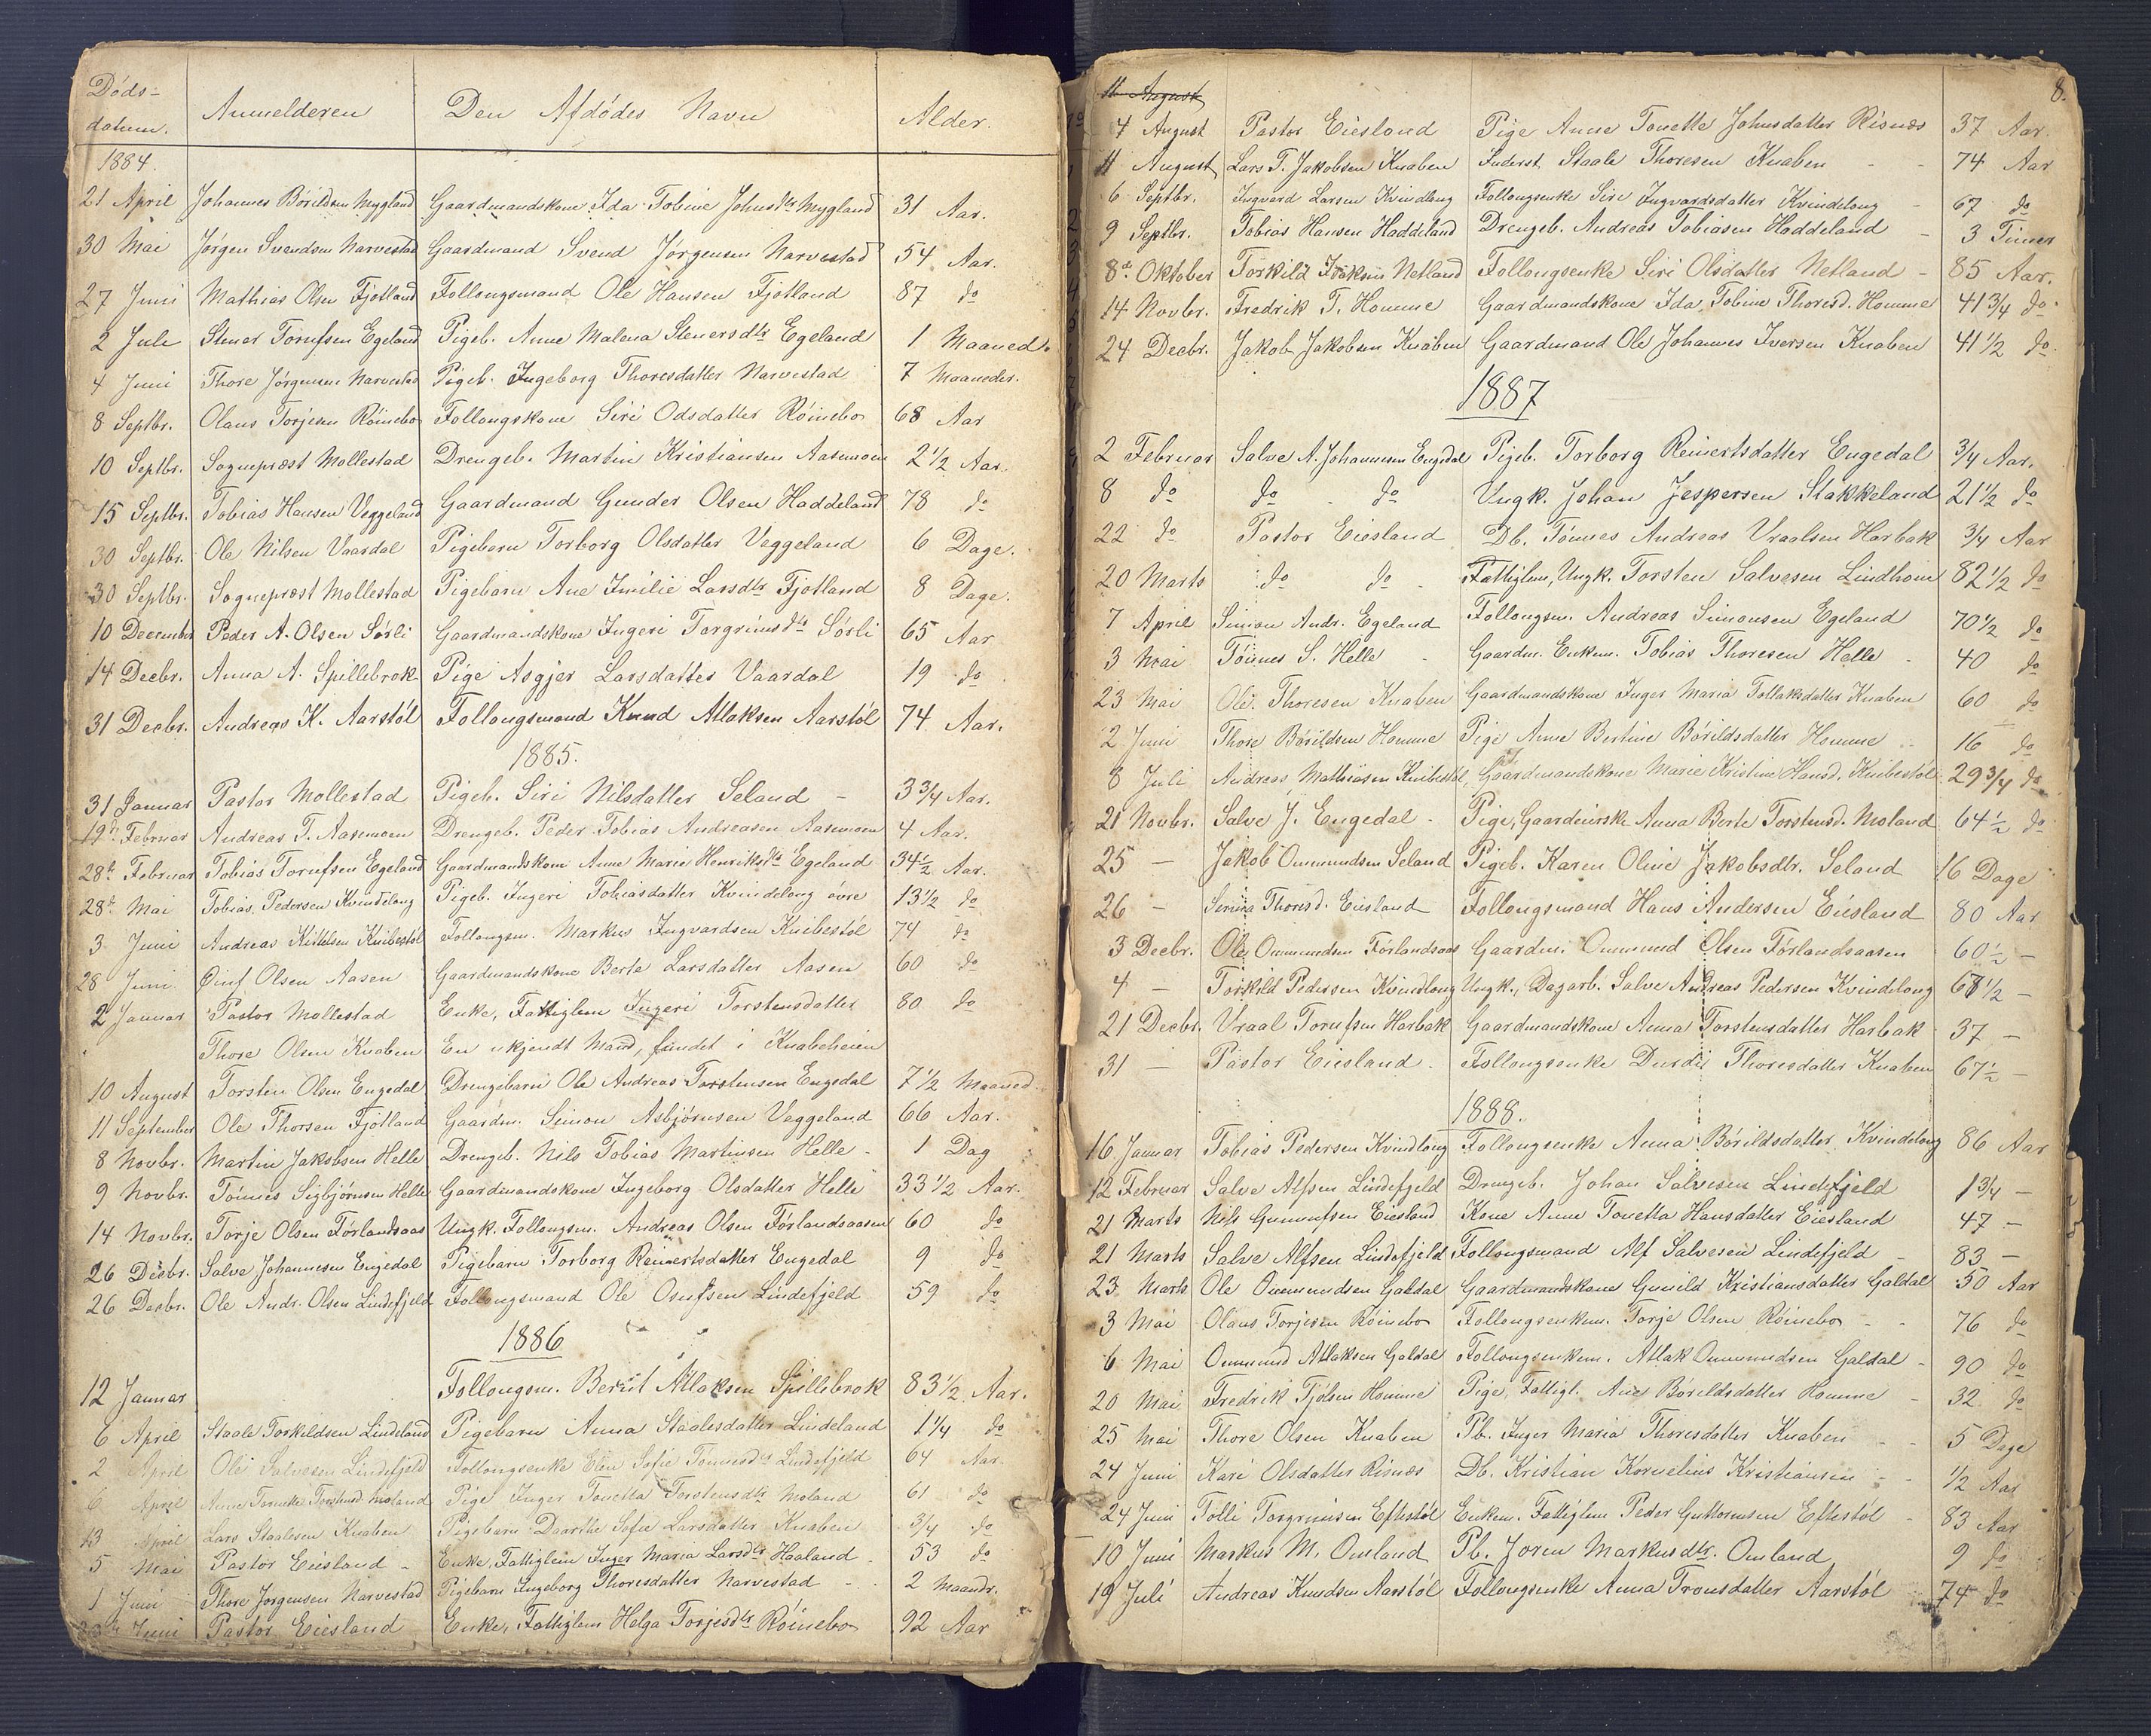 Døds-
datum. Anmelderen Den Afdødes Navn Alder.
1884.
21 April Johannes Bórildsen Mygland Gaardmandskone Ida Tobine Johnsdtr Mygland 31 Aar.
30 Mai Jørgen Svendsen Narvestad Gaardmand Svend Jørgensen Narvestad 54 Aar.
27 Juni Mathias Olsen Fjotland Follougsmand Ole Hansen Fjotland 87 do
2 Juli Stener Torufsen Egeland Pigeb. Anne Malena Stenersdtr Egeland 1 Maaned.
4 Juni Thore Jørgensen Narvestad Pigeb. Ingeborg Thoresdatter Narvestad 7 Maaneder.
8 Septbr. Olaus Torjesen Róinebo Follougskone Siri Odsdatter Róinebo 68 Aar
10 Septbr. Sognepræst Mollestad Drengeb. Martin Kristiansen Aasemoen 2 1/2 Aar.
15 Septbr. Tobias Hansen Veggeland Gaardmand Gunder Olsen Haddeland 78 do
30 Septbr. Ole Nilsen Vaardal Pigebarn Torborg Olsdatter Veggeland 6 Dage.
30 Septbr. Sogneprest Mollestad Pigebarn Ane Emilie Larsdtr Fjotland 8 Dage.
10 December Peder A. Olsen Sórli Gaardmandskone Ingeri Torgrimsdtr Sórli 65 Aar
14 Decbr. Anna A. Spillebrok Pige Asgjer Larsdatter Vaardal 19 do
31 Decbr. Andreas K. Aarstól Follougsmand Knud Atlaksen Aarstól 74 Aar.
1885.
31 Januar Pastor Mollestad Pigeb. Siri Nilsdatter Seland – 3 3/4 Aar.
19de Februar Andreas T. Aasemoen Drengeb. Peder Tobias Andreasen Aasemoen 4 Aar.
28de Februar Tobias Torufsen Egeland Gaardmandskone Anne Marie Henriksdtr Egeland 34 1/2 Aar.
28de Mai Tobias Pedersen Kvindelong Pigeb. Ingeri Tobiasdatter Kvindelong óvre 13 1/2 do
3 Juni Andreas Kittelsen Knibestól Follougsm. Markus Ingvardsen Knibestól 74 do
28 Juni Olsen Aasen Gaardmandskone Berte Larsdatter Aasen 60 do
2 Januar Pastor Mollestad Enke, Fattiglem Ingeri Torstensdatter 80 do
Thore Olsen Knaben En ukjendt Mand, fundet i Knabeheien
10 August Torsten Olsen Engedal Drengebarn Ole Andreas Torstensen Engedal 7 1/2 Maaned.
11 September Ole Thorsen Fjotland Gaardm. Simon Asbjórnsen Veggeland 66 Aar.
8 Novbr. Martin Jakobsen Helle Drengeb. Nils Tobias Martinsen Helle - 1 Dag
9 Novbr. Tónnes Sigbjórnsen Helle Gaardmandskone Ingeborg Olsdatter Helle 33 1/2 Aar.
14 Novbr. Torje Olsen Fórlandsaas Ungk. Follougsm. Andreas Olsen Fórlandsaasen 60 do
26 Decbr. Salve Johannesen Engedal Pigebarn Torborg Reinertsdatter Engedal 9 do
26 Decbr. Ole Andr. Olsen Lindefjeld Follougsmand Ole Osufsen Lindefjeld 59 do
1886
12 Januar Follougsm. Berut Atlaksen Spillebrok 83 1/2 Aar.
6 April Staale Torkildsen Lindeland Pigebarn Anna Staalesdatter Lindeland 1 1/4 do
2 April Ole Salvesen Lindefjeld Follougsenke Elen Sofie Tónnesdtr Lindefjeld 64 Aar.
6 April Anne Tonette Torstensd. Moland Pige Inger Tonetta Torstensdtr Moland 61 do
13 April Lars Staalesen Knaben Pigebarn Daarthe Sofie Larsdatter Knaben 3/4 do
5 Mai Pastor Eiesland - Enke, Fattiglem Inger Maria Larsdtr Haaland 53 do
1 Juni Thore Jorgensen Narvestad Pigebarn Ingeborg Thoresdatter Narvestad - 2 Maandr.
23de Juni Pastor Eiesland Enke, Fattiglem Helga Torjesdtr Róinebo 92 Aar
8.
11 August
4 August Pastor Eiesland Pige Anne Tonette Johnsdatter Risnæs 37 Aar.
11 August Lars T. Jakobsen Knaben Inderst Staale Thoresen Knaben - - 74 Aar
6 Septbr. Ingvard Larsen Kvindlong Follougsenke Siri Ingvardsdatter Kvindelong - 67 do
9 Septbr. Tobias Hansen Haddeland Drengeb. Andreas Tobiasen Haddeland - 3 Timer
8de Oktober Torkild Isaksen Netland Follougsenke Siri Olsdatter Netland - 85 Aar.
14 Novbr. Fredrik T. Homme Gaardmandskone Ida Tobine Thoresd. Homme 41 3/4 do
24 Decbr. Jakob Jakobsen Knaben Gaardmand Ole Johannes Iversen Knaben 41 1/2 do
1887
2 Februar Salve A. Johannesen Engedal Pigeb. Torborg Reinertsdatter Engedal 3/4 Aar.
8 do do - do Ungk. Johan Jespersen Stakkeland 21 1/2 do
22 do Pastor Eiesland Db. Tónnes Andreas Vraalsen Harbak 3/4 Aar
20 Marts do do - Fattiglem, Ungk. Torsten Salvesen Lindhom 82 1/2 do
7 April Simon Andr. Egeland Follougsm. Andreas Simonsen Egeland 70 1/2 do
3 Mai Tónnes S. Helle - Gaardm. Enkem. Tobias Thoresen Helle - 40 do
23 Mai Ole Thoresen Knaben Gaardmandskone Inger Maria Tollaksdatter Knaben 60 do
2 Juni Thore Bórildsen Homme Pige Anne Bertine Bórildsdatter Homme - 16 do
8 Juli Andreas Mathiasen Knibestól Gaardmandskone Marie Kristine Hansd. Knibestól 29 3/4 do
21 Novbr. Salve J. Engedal - Pige, Gaardeierske Anna Berte Torstensd. Moland 64 1/2 do
25 – Jakob Ommundsen Seland Pigeb. Karen Oline Jakobsdtr. Seland 16 Dage
26 – Serina Thoresd. Eiesland Follougsmand Hans Andersen Eiesland 80 Aar
3 Decbr. Ole Ommundsen Fórlandsaas Gaardm. Ommund Olsen Fórlandsaasen 60 1/2 –
4 – Torkild Pedersen Kvindlong Ungk., Dagarb. Salve Andreas Pedersen Kvindelong 67 1/2 –
21 Decbr. Vraal Torufsen Harbak Gaardmandskone Anna Torstensdatter Harbak 37 –
31 – Pastor Eiesland - Follougsenke Durdei Thoresdatter Knaben 67 1/2 –
1888.
16 Januar Tobias Pedersen Kvindlong Follougsenke Anna Bórildsdatter Kvindelong 86 Aar
12 Februar Salve Alfsen Lindefjeld Drengeb. Johan Salvesen Lindefjeld 1 3/4 –
21 Marts Nils Gunnufsen Eiesland Kone Anne Tonetta Hansdatter Eiesland 47 –
21 Marts Salve Alfsen Lindefjeld Follougsmand Alf Salvesen Lindefjeld - 83 –
23 Marts Ole Ommundsen Galdal Gaardmandskone Gunild Kristiansdatter Galdal 50 Aar
3 Mai Olaus Torjesen Róinebo Follougsenkem. Torje Olsen Róinebo - - 76 do
6 Mai Ommund Atlaksen Galdal Follougsenkem. Atlak Ommundsen Galdal - 90 do
20 Mai Fredrik Tjólsen Homme Pige, Fattigl. Ane Bórildsdatter Homme - 32 do
25 Mai Thore Olsen Knaben Pb. Inger Maria Thoresdatter Knaben - - 5 Dage
24 Juni Kari Olsdatter Risnæs Db. Kristian Kornelius Kristiansen - - 1/2 Aar
24 Juni Tolli Torgrimsen Eftestól Enkem. Fattiglem Peder Guttormsen Eftestól - 83 Aar
10 Juni Markus M. Omland Pb. Joren Markusdtr. Omland 9 do
19 Juli Andreas Knudsen Aarstól Follougsenke Anna Tronsdatter Aarstól 74 do